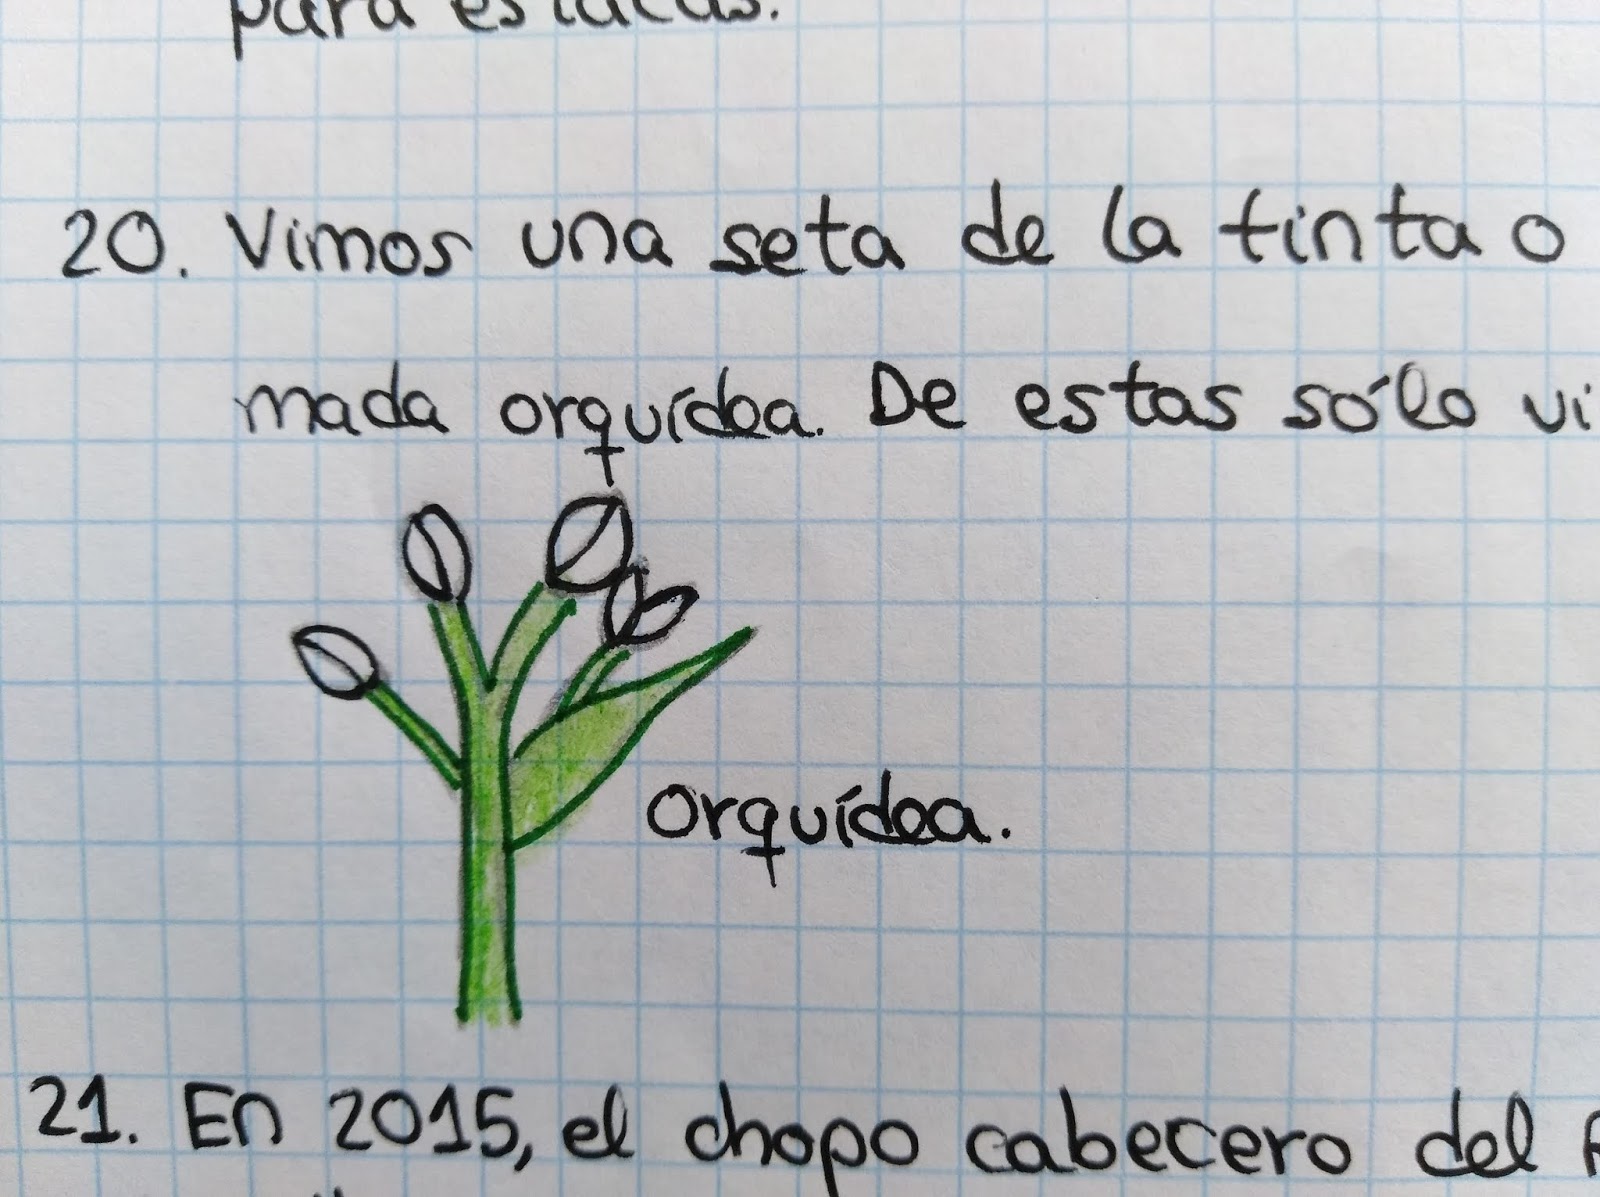 para estacas.
20. Vimos una seta de la tinta o
mada orquídea. De estas sólo vi
orquídea.
21. En 2015, el chopo cabecero del